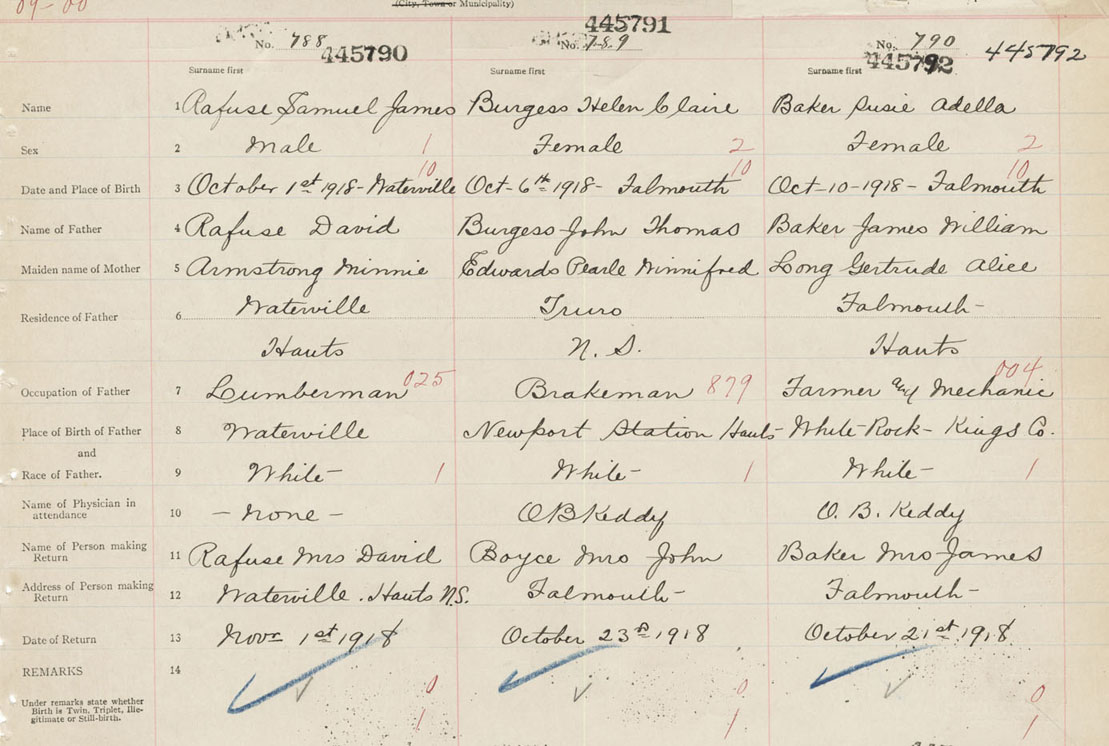 09-00
(City, Town or Municipality)
No. 788 445790 445791 No. 789 No. 790 445792 445792
Surname first Surname first Surname first
Name 1 Rafuse Samuel James Burgess Helen Claire Baker Susie Adella
Sex 2 Male 1 Female 2 Female 2
10 10 10
Date and Place of Birth 3 October 1st 1918- Waterville Oct- 6th 1918- Falmouth Oct-10-1918- Falmouth
Name of Father 4 Rafuse David Burgess John Thomas Baker James William
Maiden name of Mother 5 Armstrong Minnie Edwards Pearle Winnifred Long Gertrude Alice
Residence of Father 6 Waterville Truro Falmouth-
Hants N. S. Hants
Occupation of Father 7 Lumberman 025 Brakeman 879 Farmer and Mechanic 004
Place of Birth of Father 8 Waterville Newport Station Hants White Rock- Kings Co.
and
Race of Father. 9 White- 1 White- 1 White- 1
Name of Physician in
attendance 10 - None - O B Keddy O. B. Keddy
Name of Person making
Return 11 Rafuse Mrs David Boyce Mrs John Baker Mrs James
Address of Person making
Return 12 Waterville. Hants N.S. Falmouth- Falmouth-
Date of Return 13 Novr 1st 1918 October 23rd 1918 October 21st 1918
REMARKS 14
Under remarks state whether
Birth is Twin, Triplet, Ille-
gitimate or Still-birth.
0 0 0
1 1 1